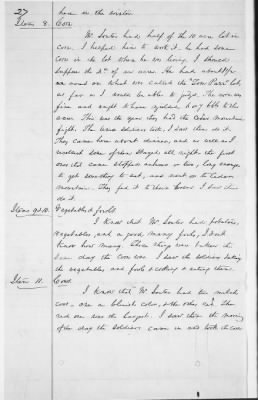 27 have in the winter
Item 8. Corn.
Mr. Souter had half of the 10 acre lot in
corn. I helped him to work it. he had some
corn in the lot when he was living, I should
suppose the 3rd of an acre. He had about
an acre on what was called the lot,
as far as I would be able to judge. The corn was
fine and ought to have yielded 6 or 7 bbls to the
acre. This was the year they had the Cedar Mountain
fight. The Union soldiers took, I saw them do it.
They came here about dinner, and as well as I
recollect some of them stayed all night. the first
ones that came stopped an hour or two, long enough
to get something to eat, and went on to Cedar
mountain. They fed it to their horses I saw them
do it.
Items 9 & 10. Vegetables & fowls
I know that Mr. Souter had potatoes,
vegetables, and a good many fowls, I don't
know how many. These things were taken the
same day the corn was. I saw the soldiers taking
the vegetables and fowls & cooking & eating them.
Item 11. Cows.
I know that Mr Souter had two milch
cows - one a blueish color, & the other red. The
red one was the largest. I saw them the morning
of the day the soldiers came in and took the corn